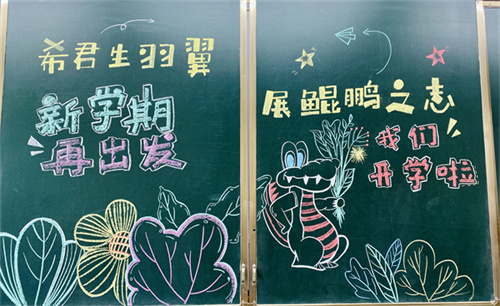 希君生羽翼
新学期
再出发
展鲲鹏之志
我们
开学啦